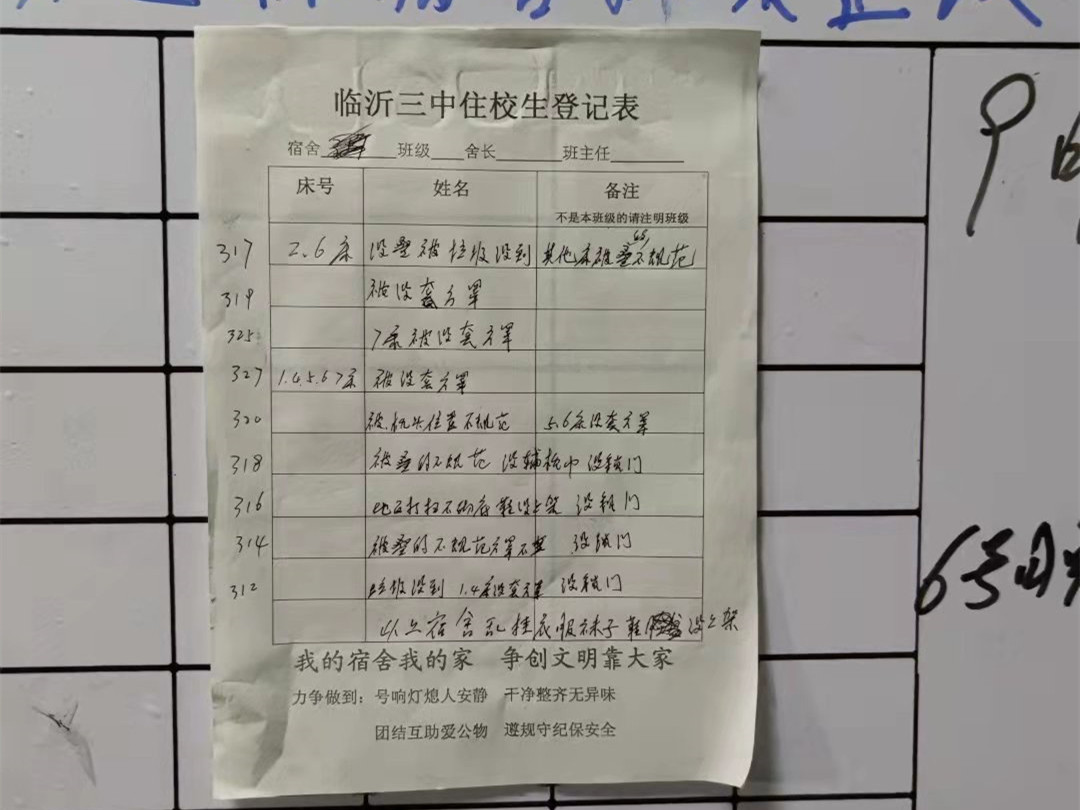 临沂三中住校生登记表
宿舍 班级 舍长 班主任
床号 姓名 备注
不是本班级的请注明班级
317 2.6床 没叠被 垃圾没到 其他床被叠的不规范
319 被没套方罩
325 7床被没套方罩
327 1.4.5.6 7床 被没套方罩
320 被.枕头位置不规范 5.6床没套方罩
318 被叠的不规范 没铺枕巾 没锁门
316 地面打扫不彻底 鞋没上架 没锁门
314 被叠的不规范方罩不 没锁门
312 垃圾没到 1.4床没套方罩 没锁门
以上宿舍乱挂衣服袜子 鞋 没上架
我的宿舍我的家 争创文明靠大家
力争做到：号响灯熄人安静 干净整齐无异味
团结互助爱公物 遵规守纪保安全
6号